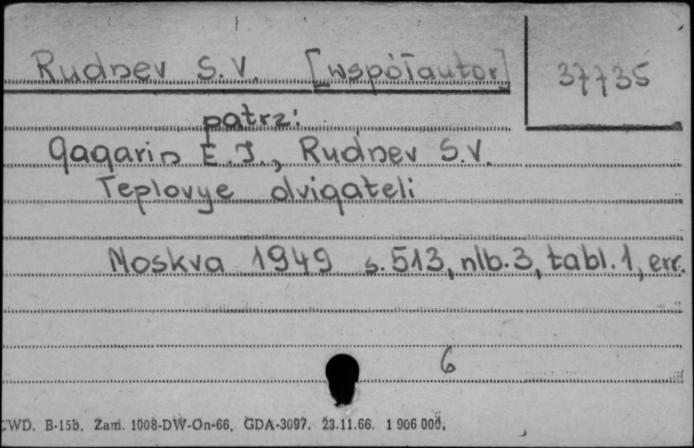 Rudnev S.V. [współautor]
37735
patrz:
Gagarin E.I., Rudnev S.V.
Teplovye dvigateli
Moskva 1949 s. 513, nlb. 3, tabl. 1, err.
6
CWD. B-15b. Zam. 1008-DW-On-66. GDA-3097. 23.11.66. 1 906 000.